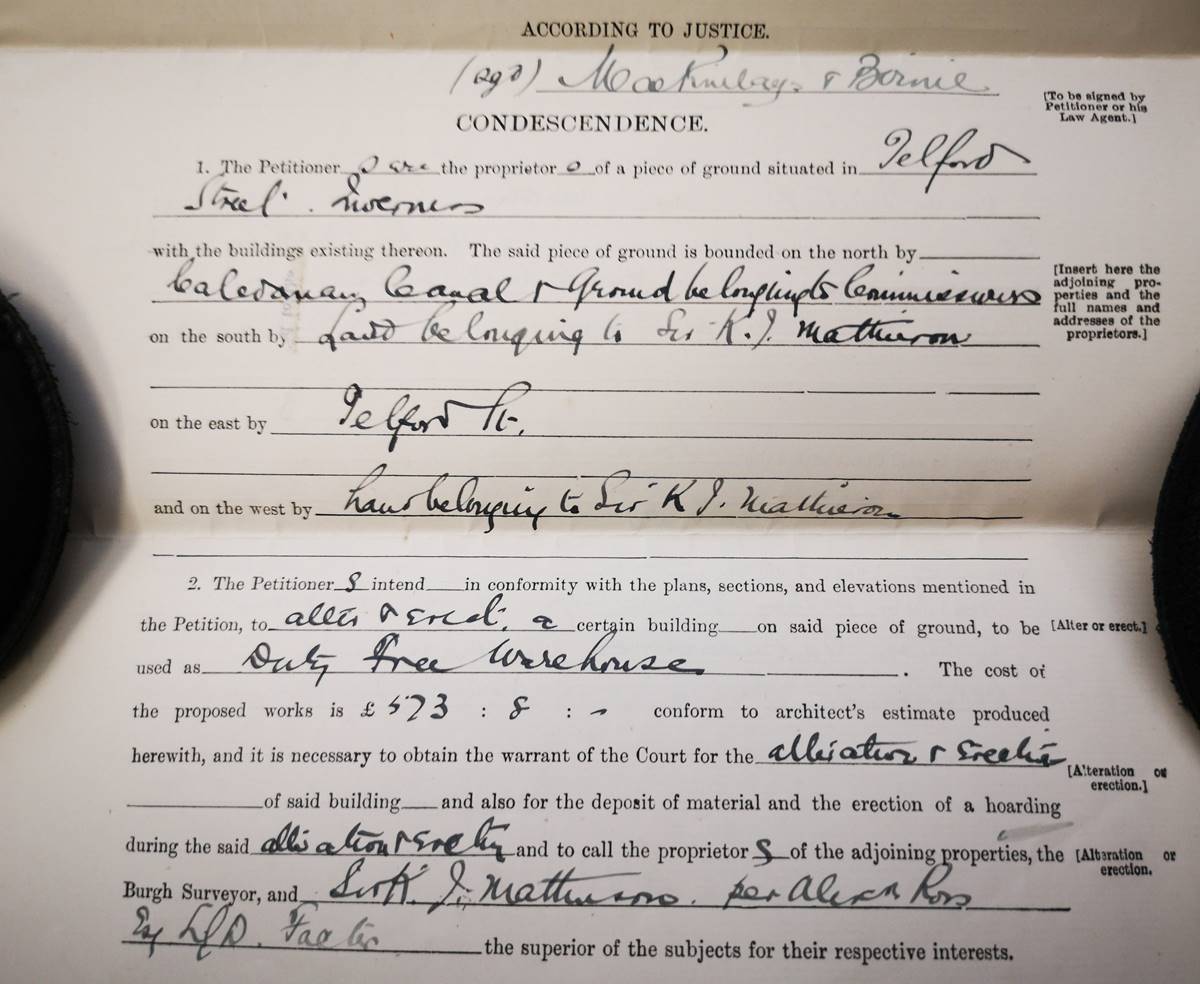 ACCORDING TO JUSTICE.
(sgd) MacKinlays & Birnie
[To be signed by
Petitioner or his
Law Agent.]
CONDESCENDENCE.
1. The Petitioner s are the proprietor s of a piece of ground situated in Telford
Street. Inverness
with the buildings existing thereon. The said piece of ground is bounded on the north by
Caledonian Canal & Ground belonging to Commissioners
[Insert here the
adjoining pro-
perties and the
full names and
addresses of the
proprietors.]
on the south by Land belonging to Sir K. J. Mathieson
on the east by Telford St.
and on the west by Land belonging to Sir K J. Mathieson
2. The Petitioner S intend in conformity with the plans, sections, and elevations mentioned in
the Petition, to alter & erect a certain building on said piece of ground, to be [Alter or erect.]
used as Duty Free Warehouse. The cost of
the proposed works is £ 573 : 8 : - conform to architect's estimate produced
herewith, and it is necessary to obtain the warrant of the Court for the alteration & erection
[Alteration or
erection.]
of said building and also for the deposit of material and the erection of a hoarding
during the said alteration & erection and to call the proprietor S of the adjoining properties, the [Alteration or
erection.
Burgh Surveyor, and Sir K. J. Mathieson. per Alexr Ross
Esq LLD. Factor the superior of the subjects for their respective interests.